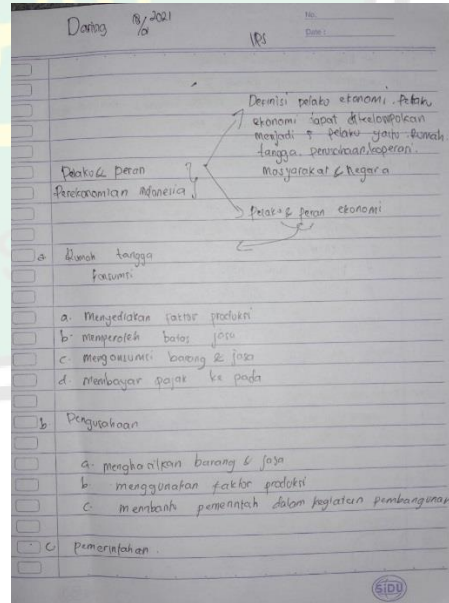 Daring 18/01 2021
IPS
No.
Date :
Definisi pelaku ekonomi. Pelaku
ekonomi dapat dikelompokan
menjadi 5 pelaku yaitu Rumah
tangga. perusahaan, koperasi.
Masyarakat & Negara
Pelaku & peran
Perekonomian Indonesia
Pelaku & peran ekonomi
a Rumah tangga
konsumsi
a. Menyediakan faktor produksi
b. memperoleh balas jasa
c. mengonsumsi barang & jasa
d. membayar pajak ke pada
b Pengusahaan
a. menghasilkan barang & jasa
b. menggunakan faktor produksi
c. membantu pemerintah dalam kegiatan pembangunan
c pemerintahan.
SIDU